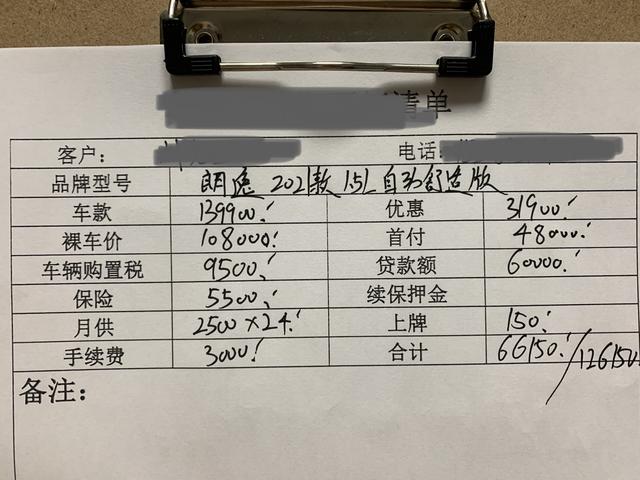 清单
客户： 电话：
品牌型号 朗逸 202款 1.5L 自动舒适版
车款 139900. 优惠 31900.
裸车价 108000. 首付 48000.
车辆购置税 9500. 贷款额 60000.
保险 5500. 续保押金
月供 2500×24. 上牌 150.
手续费 3000. 合计 66150./126150
备注：